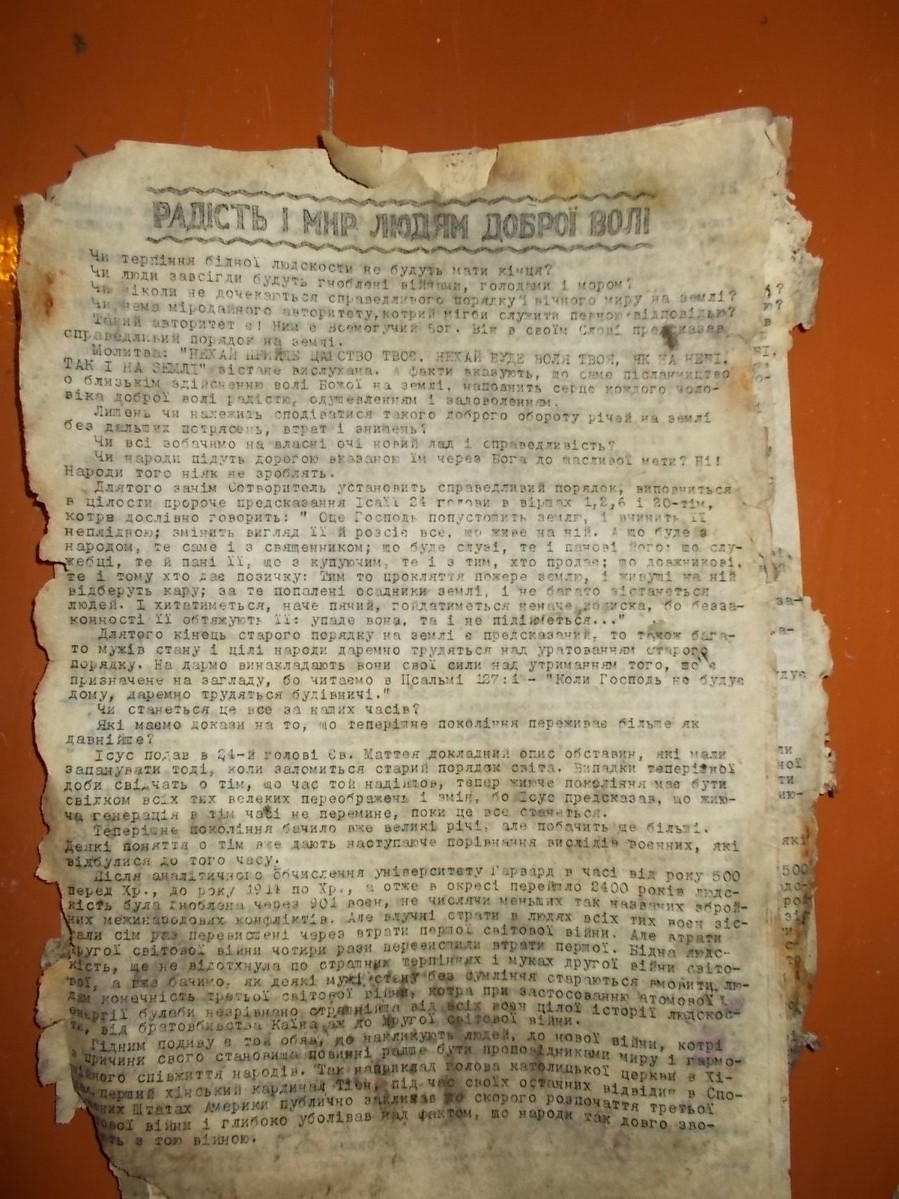 РАДІСТЬ І МИР ЛЮДЯМ ДОБРОЇ ВОЛІ
Чи терпіння бідної людскости не будуть мати кінця?
Чи люди завсігди будуть гноблені війнами, голодами і мором?
Чи ніколи не дочекаються справедливого порядку і вічного миру на землі?
Чи нема міродайного авторитету, котрий мігби служити певною відповідью?
Такий авторитет є! Ним є Всемогучий Бог. Він в своїм Слові предсказав
справедливий порядок на землі.
Молитва: "НЕХАЙ ПРИЙДЕ ЦАРСТВО ТВОЄ. НЕХАЙ БУДЕ ВОЛЯ ТВОЯ, ЯК НА НЕБІ,
ТАК І НА ЗЕМЛІ" зістане вислухана. А факти вказують, що саме післанництво
о близькім здійсненню волі Божої на землі, наповнить серце кождого чоло-
віка доброї волі радістю, одушевленням і задоволенням.
Лишень чи належить сподіватися такого доброго обороту річей на землі
без дальших потрясень, втрат і знищень?
Чи всі зобачимо на власні очі новий лад і справедливість?
Чи народи підуть дорогою вказаною їм через Бога до щасливої мети? Ні!
Народи того ніяк не зроблять.
Длятого заким Сотворитель установить справедливий порядок, виповниться
в цілости пророче предсказання Ісаії 24 голови в віршах 1,2,6 і 20-тім,
котре дослівно говорить: " Оце Господь попустошить землю, і вчинить її
неплідною; змінить вигляд її й розсіє все, що живе на ній. А що буде з
народом, те саме і з священником; що буде слузі, те і панові його; що слу-
жебці, те й пані її, що з купуючим, те і з тим, хто продає; що довжникові,
те і тому хто дає позичку: Тим то црокляття пожере землю, і живущі на ній
відберуть кару; за те попалені осадники землі, і не багато зістанеться
людей. І хитатиметься, наче пяний, гойдатиметься неначе колиска, бо безза-
конності її обтяжують її: упаде вона, та і не підійметься..."
Длятого кінець старого порядку на землі є предсказаний, то також бага-
то мужів стану і цілі народи даремно трудяться над уратованням старого
порядку. На дармо винакладають вони свої сили над утриманням того, що є
призначене на загладу, бо читаємо в Псальмі 127:1 - "Коли Господь не будує
дому, даремно трудяться будівничі."
Чи станеться це все за наших часів?
Які маємо докази на то, що теперішне покоління переживає більше як
давнійше?
Ісус подав в 24-й голові Єв. Маттея докладний опис обставин, які мали
запанувати тоді, коли заломиться старий порядок світа. Випадки теперішної
доби свідчать о тім, що час той надійшов, тепер живуче покоління має бути
свідком всіх тих великих переображень і змін, бо Ісус предсказав, що жию-
ча генерація в тім часі не перемине, поки це все станеться.
Теперішне покоління бачило вже великі річі, але побачить ще більші.
Деякі поняття о тім вже дають наступаюче порівнання вислідів воєнних, які
відбулися до того часу.
Після аналітичного обчислення університету Гарвард в часі від року 500
перед Хр., до року 1914 по Хр., а отже в окресі перейшло 2400 років людс-
кість була гноблена через 901 воєн, не числячи меньших так названих зброй-
них межинародових конфліктів. Але злучні страти в людях всіх тих воєн зіс-
тали сім раз перевищені через втрати першої світової війни. Але втрати
другої світової війни чотири рази перевищили втрати першої. Бідна людс-
кість, ще не відотхнула по страшних терпіннях і муках другої війни світо-
вої, а вже бачимо, як деякі мужі стану без сумління стараються вмовити лю-
дям конечність третьої світової війни, котра при застосованню атомової
енергії булаби незрівнано страшніша від всіх воєн цілої історії людскос-
ти, від братовбивства Каїна аж до другої світової війни.
Гідним подиву є той обяв, що накликують людей, до нової війни, котрі
з причини свого становища повинні радше бути проповідниками миру і гармо-
нійного співжиття народів. Так наприклад голова католицької церкви в Хі-
перший хінський кардинал Тієн, під час своїх останних відвідин в Спо-
лучених Штатах Америки публично закликав до скорого розпочаття третьої
світової війни і глибоко уболівав над фактом, що народи так довго зво-
з тою війною.